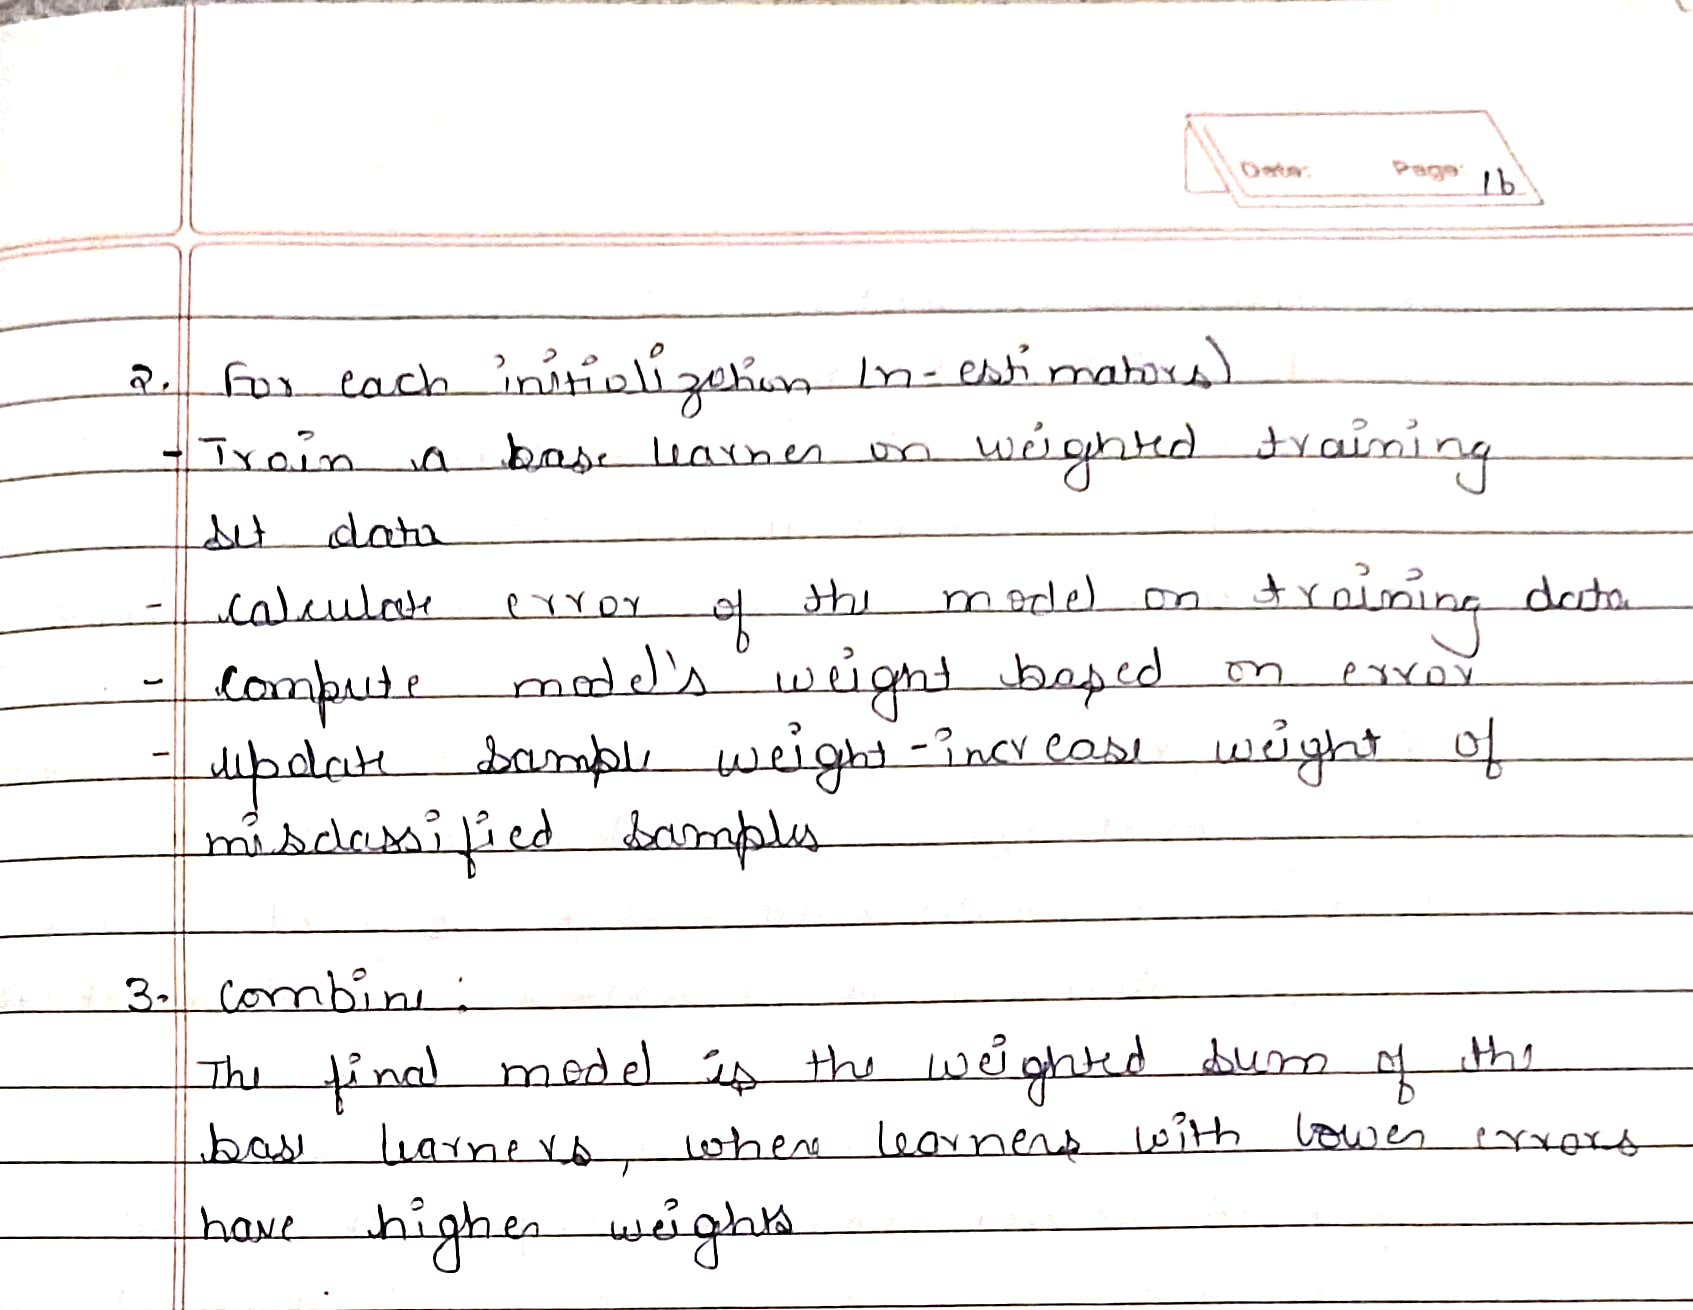 Date: Page: 16
2. For each initialization (n-estimators)
- Train a base learner on weighted training
set data
- calculate error of the model on training data
- compute model's weight based on error
- update sample weight - increase weight of
misclassified samples
3. combine:
The final model is the weighted sum of the
base learners, where learners with lower errors
have higher weights